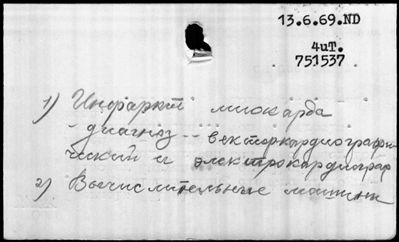 13.6.69.ND
4иТ.
751537
1) Инфаркт миокарда
- диагноз - векторкардиографи-
ческий и электрокардиограф
2) Вычислительные машины